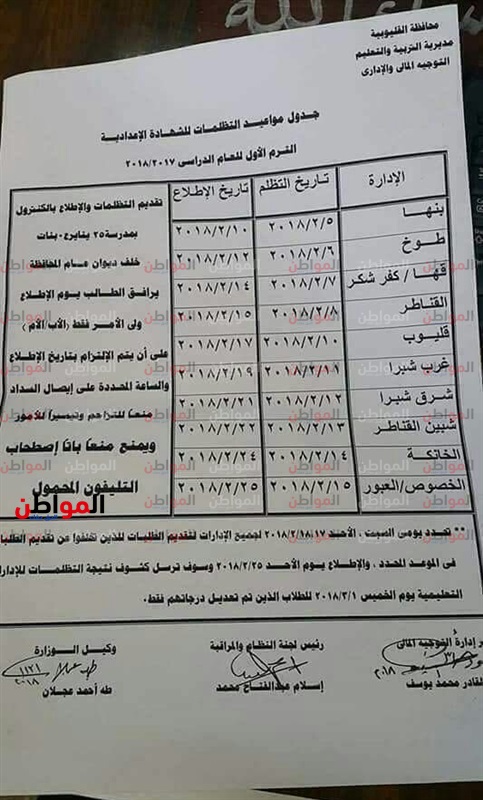 محافظة القليوبية
مديرية التربية والتعليم
التوجيه المالى والإدارى
جدول مواعيد التظلمات للشهادة الإعدادية
الترم الأول للعام الدراسى ٢٠١٨/٢٠١٧
الإدارة تاريخ التظلم تاريخ الإطلاع
بنها ٢٠١٨/٢/٥ ٢٠١٨/٢/١٠
طوخ ٢٠١٨/٢/٦ ٢٠١٨/٢/١٢
قها / كفر شكر ٢٠١٨/٢/٧ ٢٠١٨/٢/١٤
القناطر ٢٠١٨/٢/٨ ٢٠١٨/٢/١٥
قليوب ٢٠١٨/٢/١٠ ٢٠١٨/٢/١٧
غرب شبرا ٢٠١٨/٢/١١ ٢٠١٨/٢/١٩
شرق شبرا ٢٠١٨/٢/١٢ ٢٠١٨/٢/٢١
شبين القناطر ٢٠١٨/٢/١٣ ٢٠١٨/٢/٢٢
الخانكة ٢٠١٨/٢/١٤ ٢٠١٨/٢/٢٤
الخصوص/العبور ٢٠١٨/٢/١٥ ٢٠١٨/٢/٢٥
تقديم التظلمات والإطلاع بالكنترول
بمدرسة ٢٥ يناير ع٠ بنات
خلف ديوان عام المحافظة
يرافق الطالب يوم الإطلاع
ولى الأمر فقط (الأب/الأم)
على أن يتم الإلتزام بتاريخ الإطلاع
والساعة المحددة على إيصال السداد
منعاً للتزاحم وتيسيراً للأمور
ويمنع منعاً باتاً إصطحاب
التليفون المحمول
المواطن
** تحدد يومى السبت ، الأحد ٢٠١٨/٢/١٨،١٧ لجميع الإدارات لتقديم الطلبات للذين تخلفوا عن تقديم
فى الموعد المحدد ، والإطلاع يوم الأحد ٢٠١٨/٢/٢٥ وسوف ترسل كشوف نتيجة التظلمات
التعليمية يوم الخميس ٢٠١٨/٣/١ للطلاب الذين تم تعديل درجاتهم فقط.
إدارة التوجيه المالى رئيس لجنة النظام والمراقبة وكيل الوزارة
محمد يوسف إسلام عبدالفتاح محمد طه أحمد عجلان